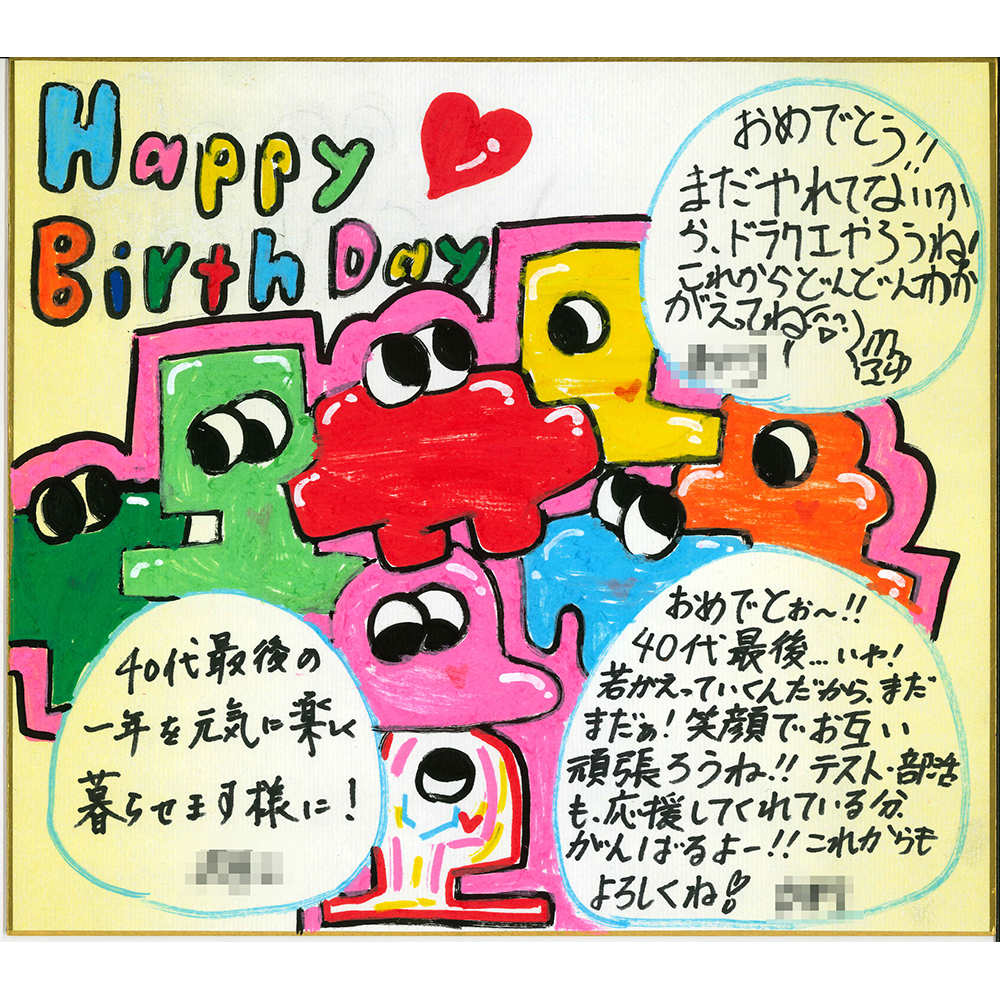 Happy
Birth Day
おめでとう!!
まだやれてないか
ら、ドラクエやろうね!
これからどんどんわか
がえってね
40代最後の
一年を元気に楽しく
暮らせます様に!
おめでとぉ〜!!
40代最後...いや!
若がえっていくんだから、まだ
まだぁ!笑顔でお互い
頑張ろうね!!テスト・部活
も、応援してくれている分
がんばるよー!!これからも
よろしくね!